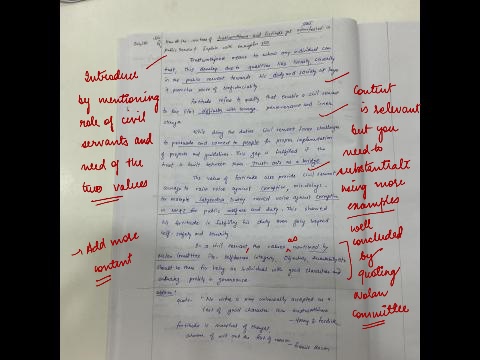 How do the virtues of Trustworthiness and Fortitude get manifested in
public service? Explain with examples
Trustworthyness means to whom any individual can
trust. This develop due to qualities like honesty, causality
in the public servant towards his duty and society at large
it provides sense of confidentiality.
Fortitude refers to quality that enable a civil servant
to face difficulties with courage, perseverance and inner
strength
While doing the duties Civil servant faces challenges
to persuade and connect to people for proper implementation
of projects and guidelines. This gap is fulfilled if the
trust is built between them. Trust acts as a bridge.
The value of fortitude also provide Civil servant
courage to raise voice against corruption, mis doings.
for example Satyendra Dubey raised voice against corruption
in NHAI for public welfare and duty. This showed
his fortitude in fulfiling his duty even going beyond
self safety and security
In a civil servant, the values, as mentioned by
Nolan Committee like Selflessness Integrity, Objectivity, Accountability etc
should be there for being an individual with good character and
ensuring probity in governance.
quote- "No virtue is more universally accepted as a
test of good character than trustworthiness
fortitude is marshal of thought
armour of will and the fort of reason
- Francis Bacon
Introduce
by mentioning
role of civil
servants and
need of the
two values
→ Add more
content
Content
is relevant
but you
need to
substantiate
being more
examples
well
concluded
by
quoting
Nolan
committee